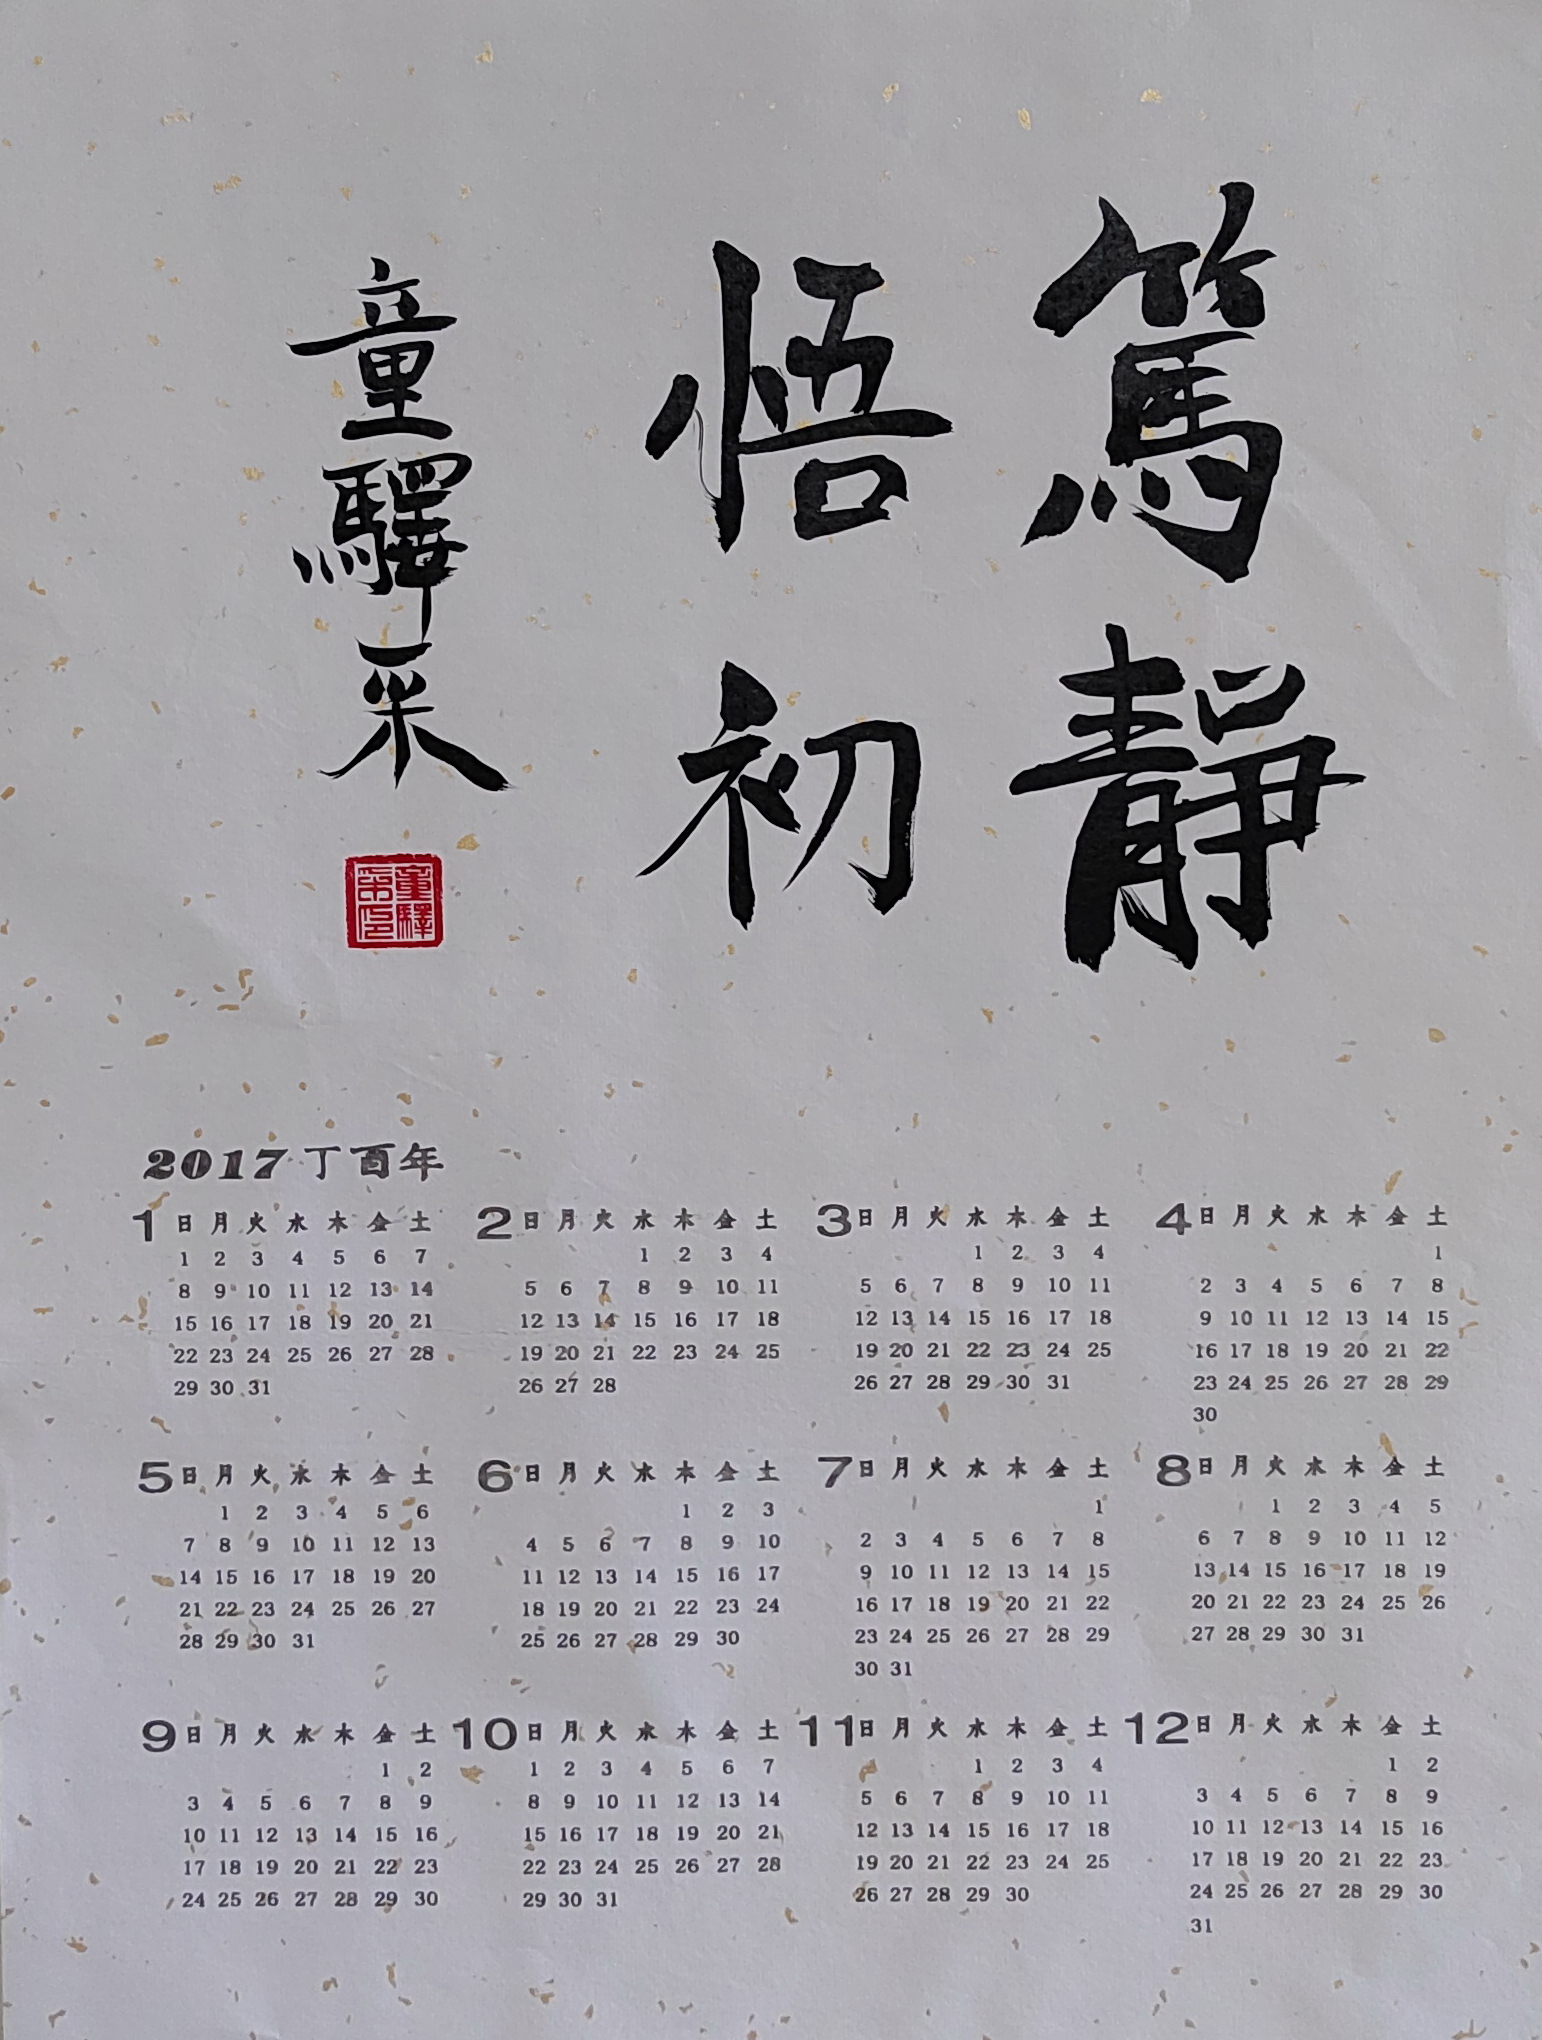 篤靜
悟初
童驛采
童驛
采印
2017 丁酉年
1 日 月 火 水 木 金 土
1 2 3 4 5 6 7
8 9 10 11 12 13 14
15 16 17 18 19 20 21
22 23 24 25 26 27 28
29 30 31
2 日 月 火 水 木 金 土
1 2 3 4
5 6 7 8 9 10 11
12 13 14 15 16 17 18
19 20 21 22 23 24 25
26 27 28
3 日 月 火 水 木 金 土
1 2 3 4
5 6 7 8 9 10 11
12 13 14 15 16 17 18
19 20 21 22 23 24 25
26 27 28 29 30 31
4 日 月 火 水 木 金 土
1
2 3 4 5 6 7 8
9 10 11 12 13 14 15
16 17 18 19 20 21 22
23 24 25 26 27 28 29
30
5 日 月 火 水 木 金 土
1 2 3 4 5 6
7 8 9 10 11 12 13
14 15 16 17 18 19 20
21 22 23 24 25 26 27
28 29 30 31
6 日 月 火 水 木 金 土
1 2 3
4 5 6 7 8 9 10
11 12 13 14 15 16 17
18 19 20 21 22 23 24
25 26 27 28 29 30
7 日 月 火 水 木 金 土
1
2 3 4 5 6 7 8
9 10 11 12 13 14 15
16 17 18 19 20 21 22
23 24 25 26 27 28 29
30 31
8 日 月 火 水 木 金 土
1 2 3 4 5
6 7 8 9 10 11 12
13 14 15 16 17 18 19
20 21 22 23 24 25 26
27 28 29 30 31
9 日 月 火 水 木 金 土
1 2
3 4 5 6 7 8 9
10 11 12 13 14 15 16
17 18 19 20 21 22 23
24 25 26 27 28 29 30
10 日 月 火 水 木 金 土
1 2 3 4 5 6 7
8 9 10 11 12 13 14
15 16 17 18 19 20 21
22 23 24 25 26 27 28
29 30 31
11 日 月 火 水 木 金 土
1 2 3 4
5 6 7 8 9 10 11
12 13 14 15 16 17 18
19 20 21 22 23 24 25
26 27 28 29 30
12 日 月 火 水 木 金 土
1 2
3 4 5 6 7 8 9
10 11 12 13 14 15 16
17 18 19 20 21 22 23
24 25 26 27 28 29 30
31